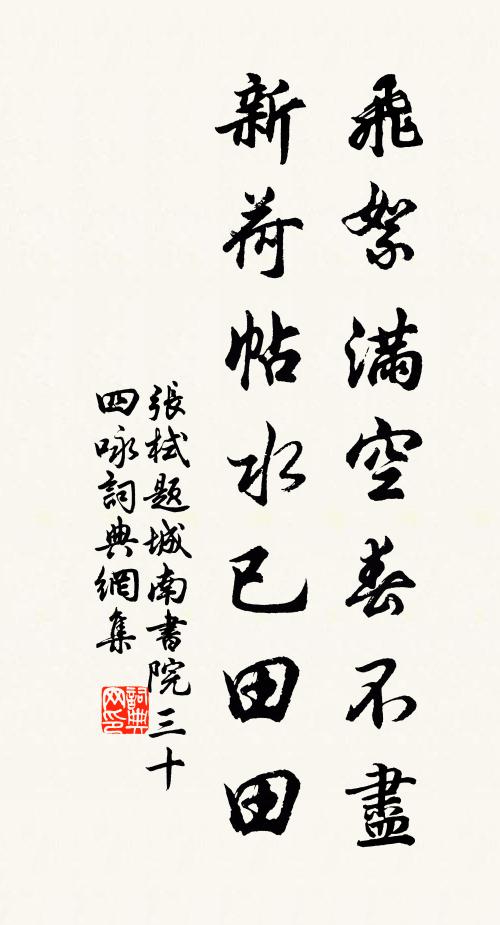 飛絮滿空春不盡
新荷帖水已田田
張栻題城南書院三十
四咏詞典網集
詞典网印